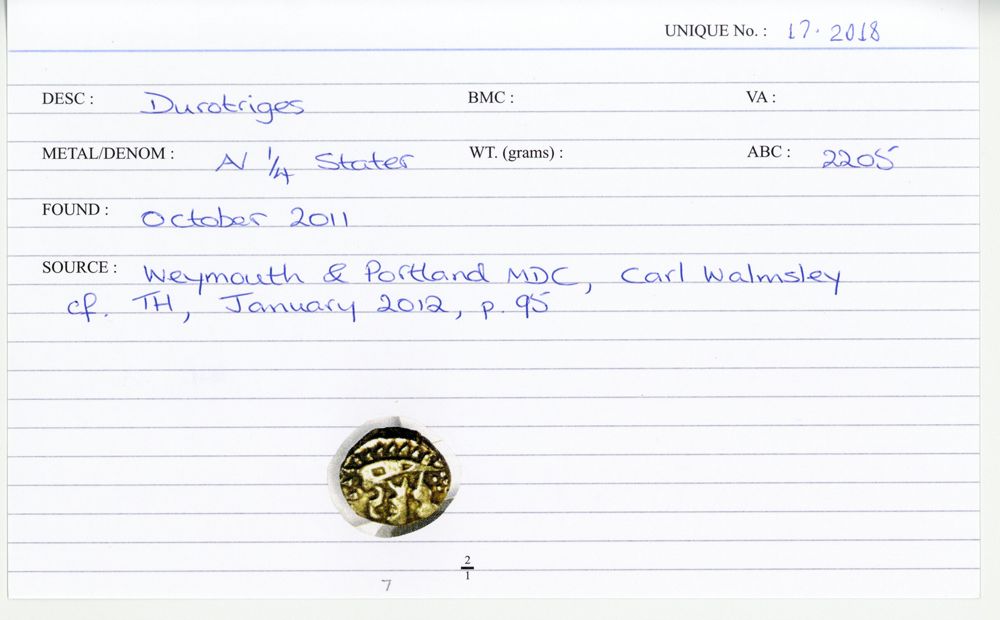 UNIQUE No. : 17. 2018
DESC : Durotriges BMC : VA :
METAL/DENOM : AV 1/4 Stater WT. (grams) : ABC : 2205
FOUND : October 2011
SOURCE : Weymouth & Portland MDC, Carl Walmsley
cf. TH, January 2012, p. 95
2
1
7